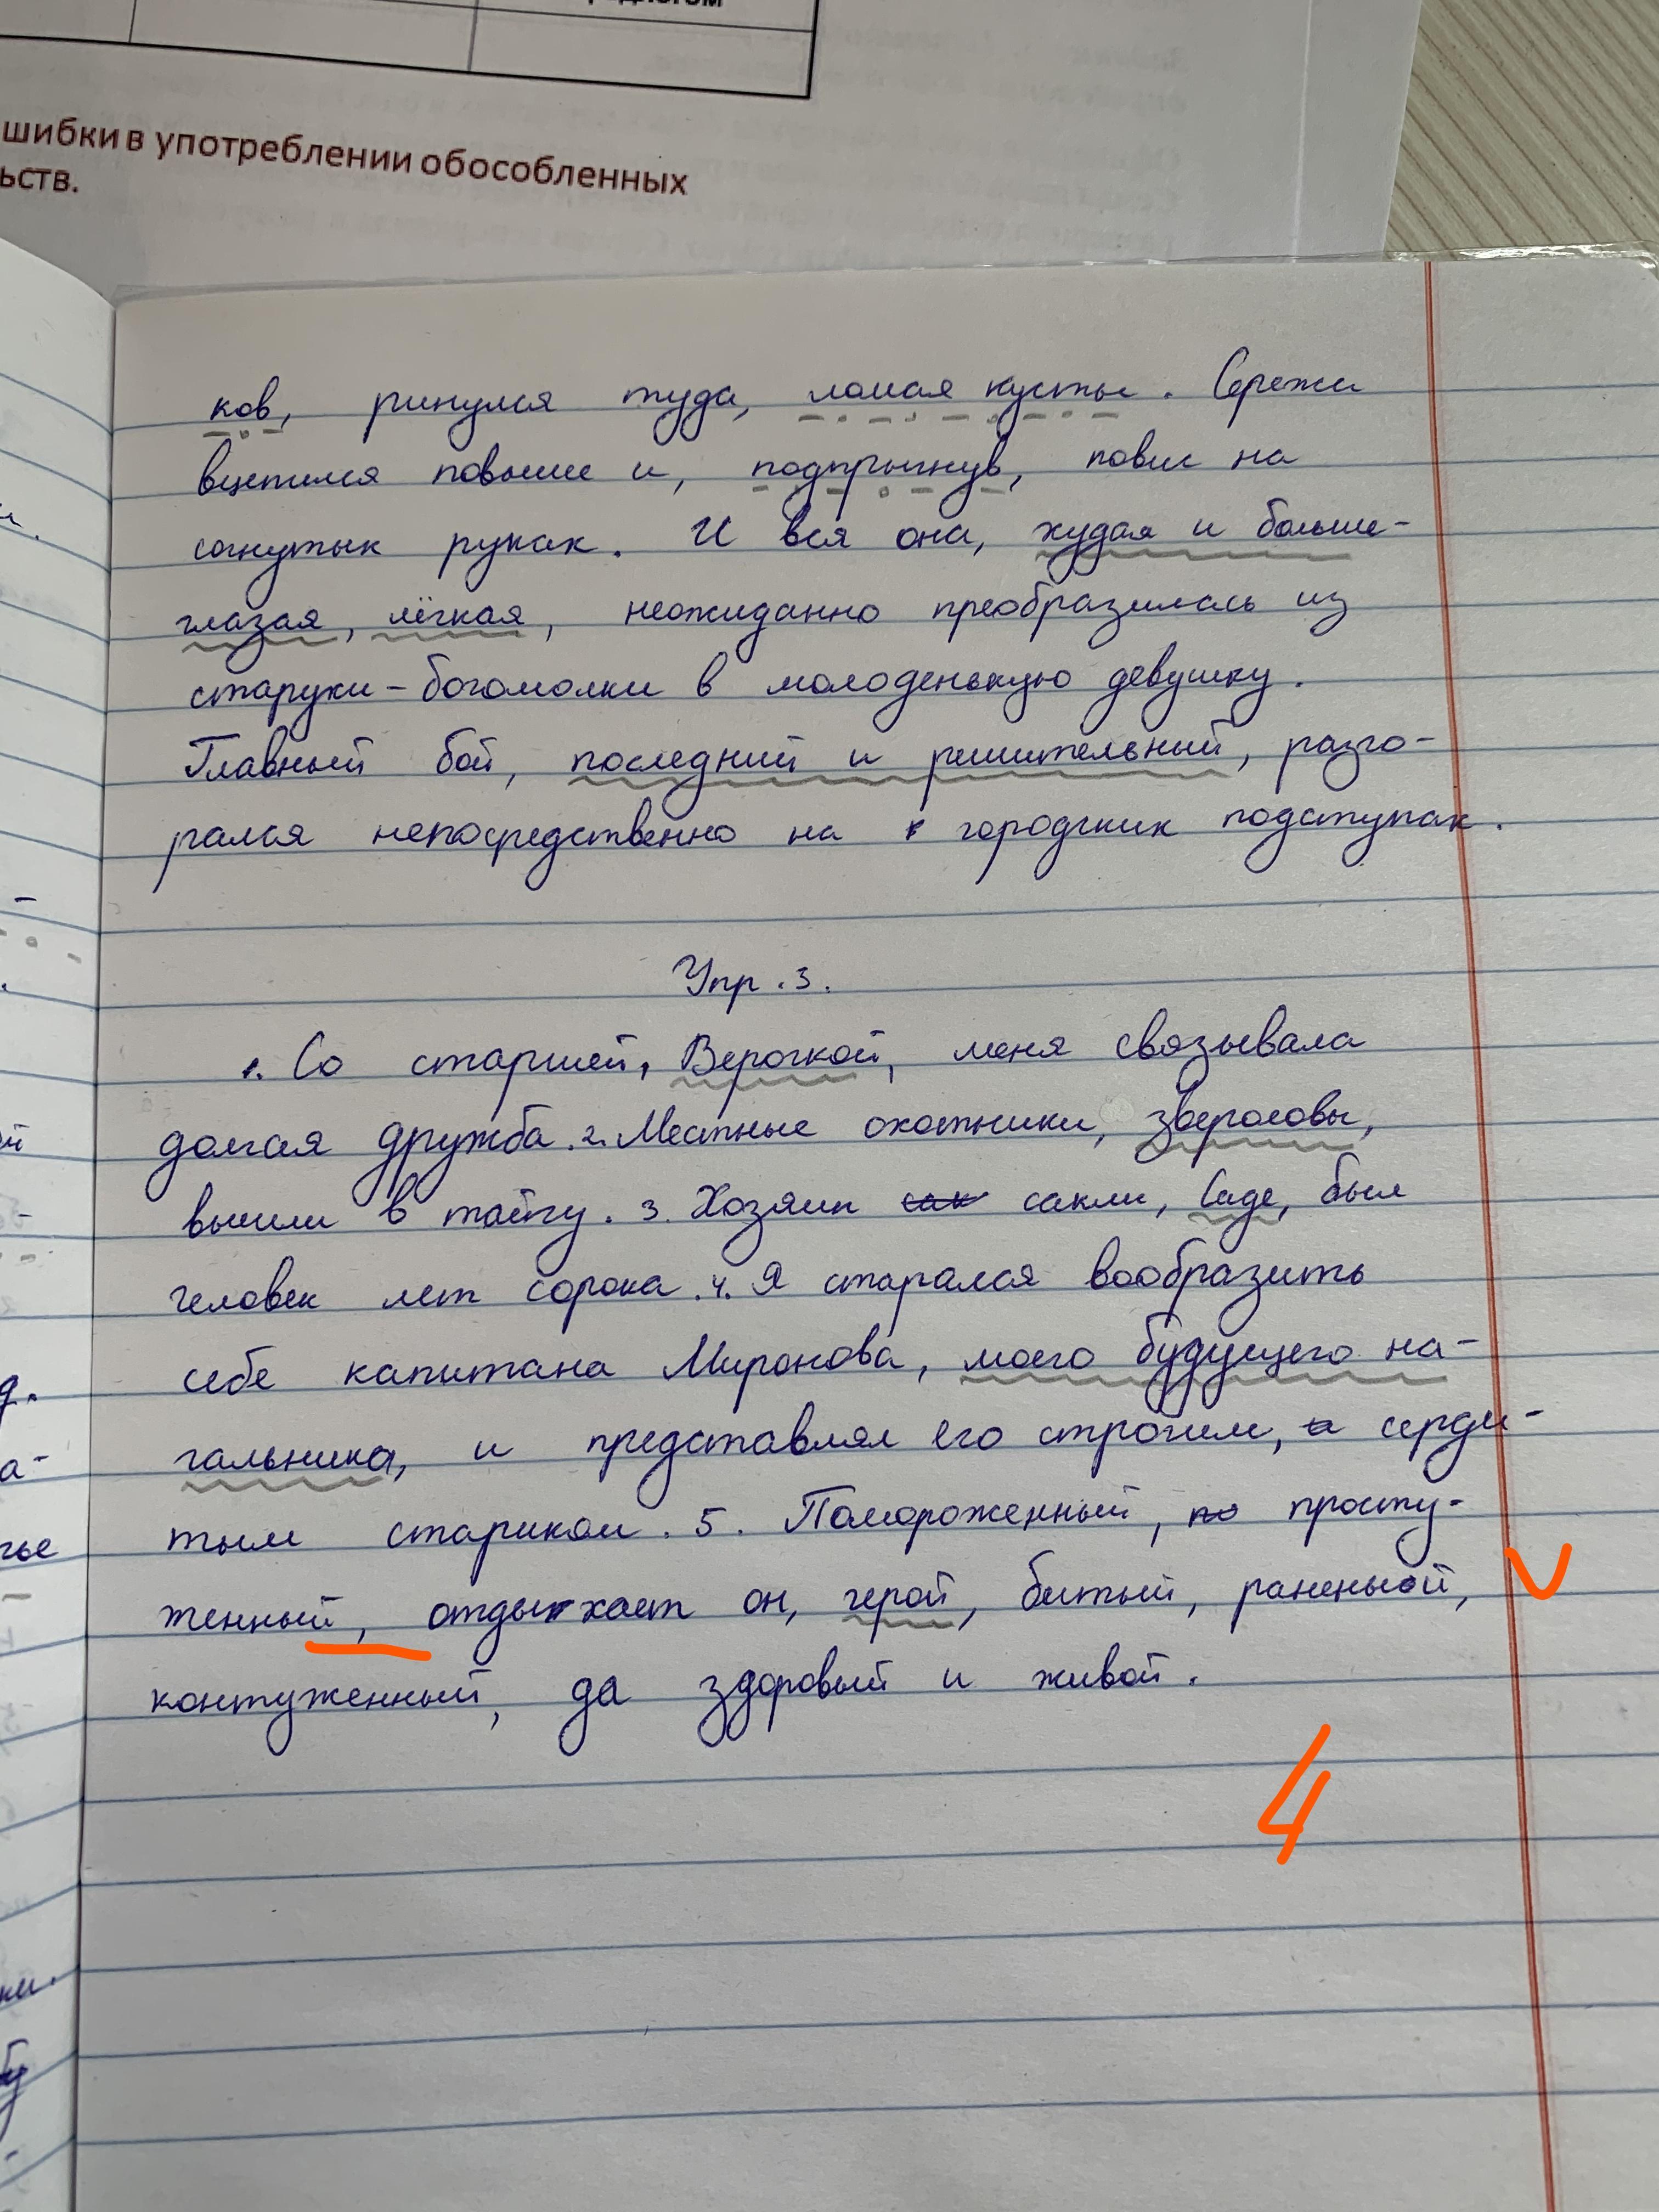 шибки в употреблении обособленных
ьств.
ков, ринулся туда, ломая кусты. Сережа
вцепился повыше и, подпрыгнув, повис на
согнутых руках. И вся она, худая и больше-
глазая, лёгкая, неожиданно преобразилась из
старухи-богомолки в молоденькую девушку.
Главный бой, последний и решительный, разго-
рался непосредственно на городских подступах.
Упр. 3.
1. Со старшей, Верочкой, меня связывала
долгая дружба. 2. Местные охотники, звероловы,
вышли в тайгу. 3. Хозяин сакли, Саде, был
человек лет сорока. 4. Я старался вообразить
себе капитана Миронова, моего будущего на-
чальника, и представлял его строгим, серди-
тым стариком. 5. Помороженный, просту-
женный, отдыхает он, герой, битый, раненый,
контуженный, да здоровый и живой.
4